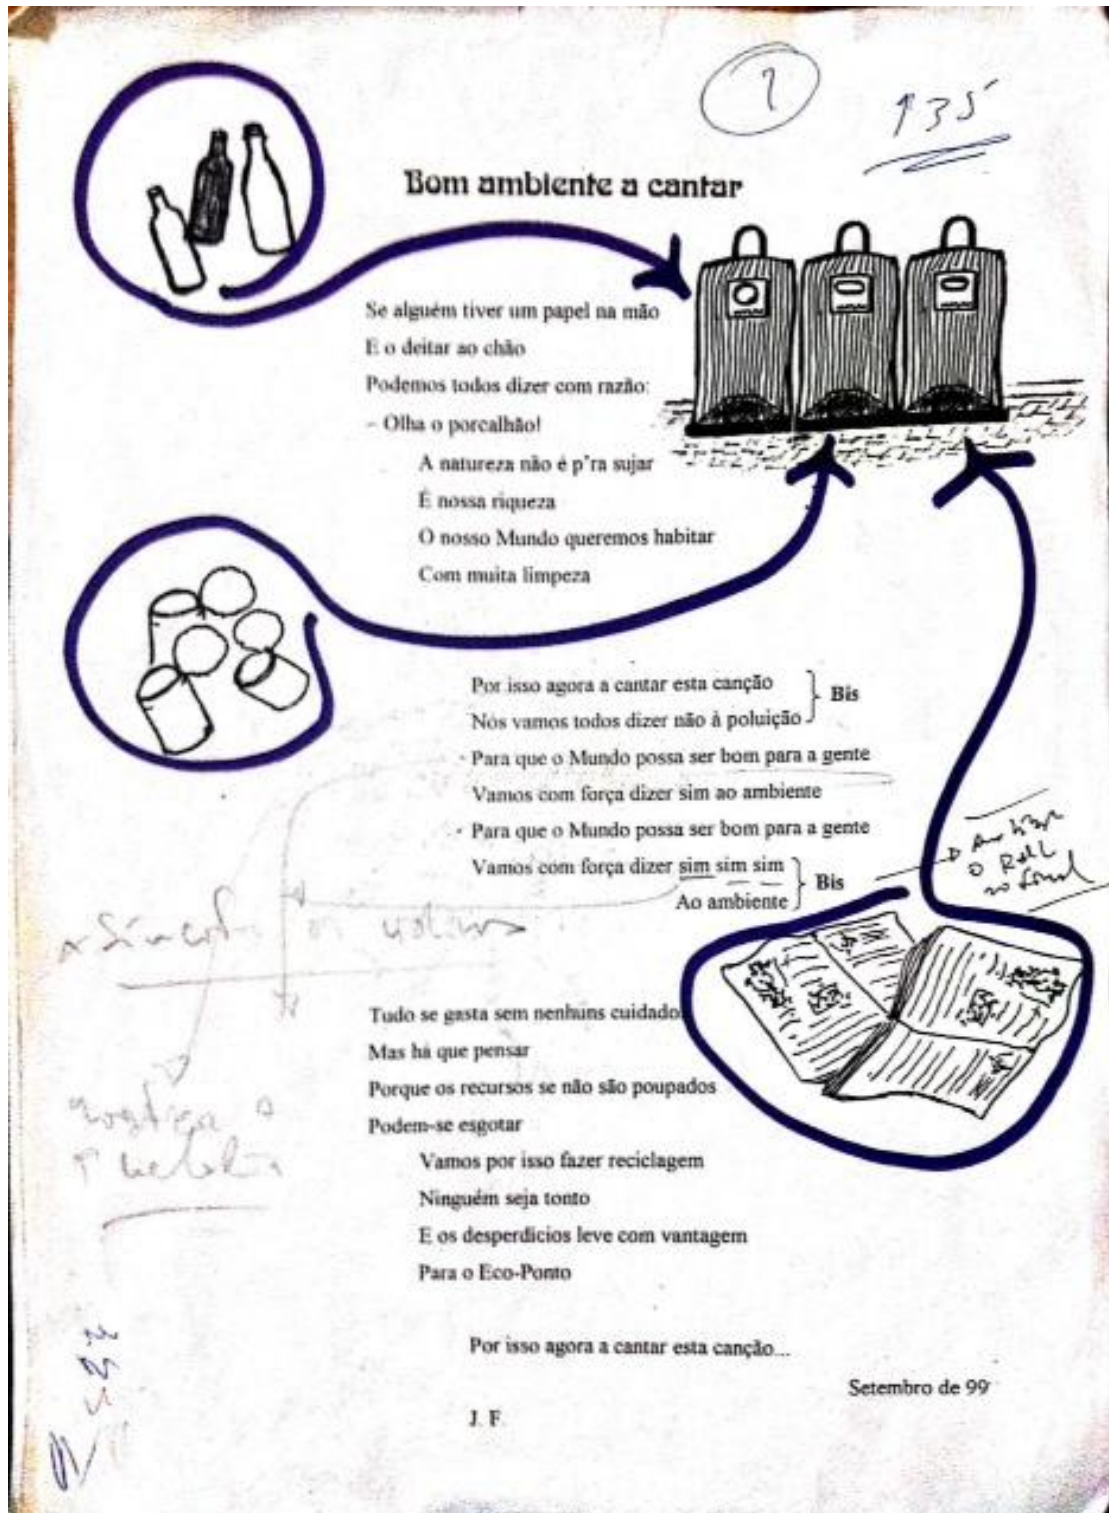 135
Bom ambiente a cantar
Se alguém tiver um papel na mão
E o deitar ao chão
Podemos todos dizer com razão:
– Olha o porcalhão!
A natureza não é p'ra sujar
É nossa riqueza
O nosso Mundo queremos habitar
Com muita limpeza
Por isso agora a cantar esta canção
Nós vamos todos dizer não à poluição
Bis
Para que o Mundo possa ser bom para a gente
Vamos com força dizer sim ao ambiente
Para que o Mundo possa ser bom para a gente
Vamos com força dizer sim sim sim
Ao ambiente
Bis
Tudo se gasta sem nenhuns cuidados
Mas há que pensar
Porque os recursos se não são poupados
Podem-se esgotar
Vamos por isso fazer reciclagem
Ninguém seja tonto
E os desperdícios leve com vantagem
Para o Eco-Ponto
Por isso agora a cantar esta canção...
Setembro de 99
J. F.